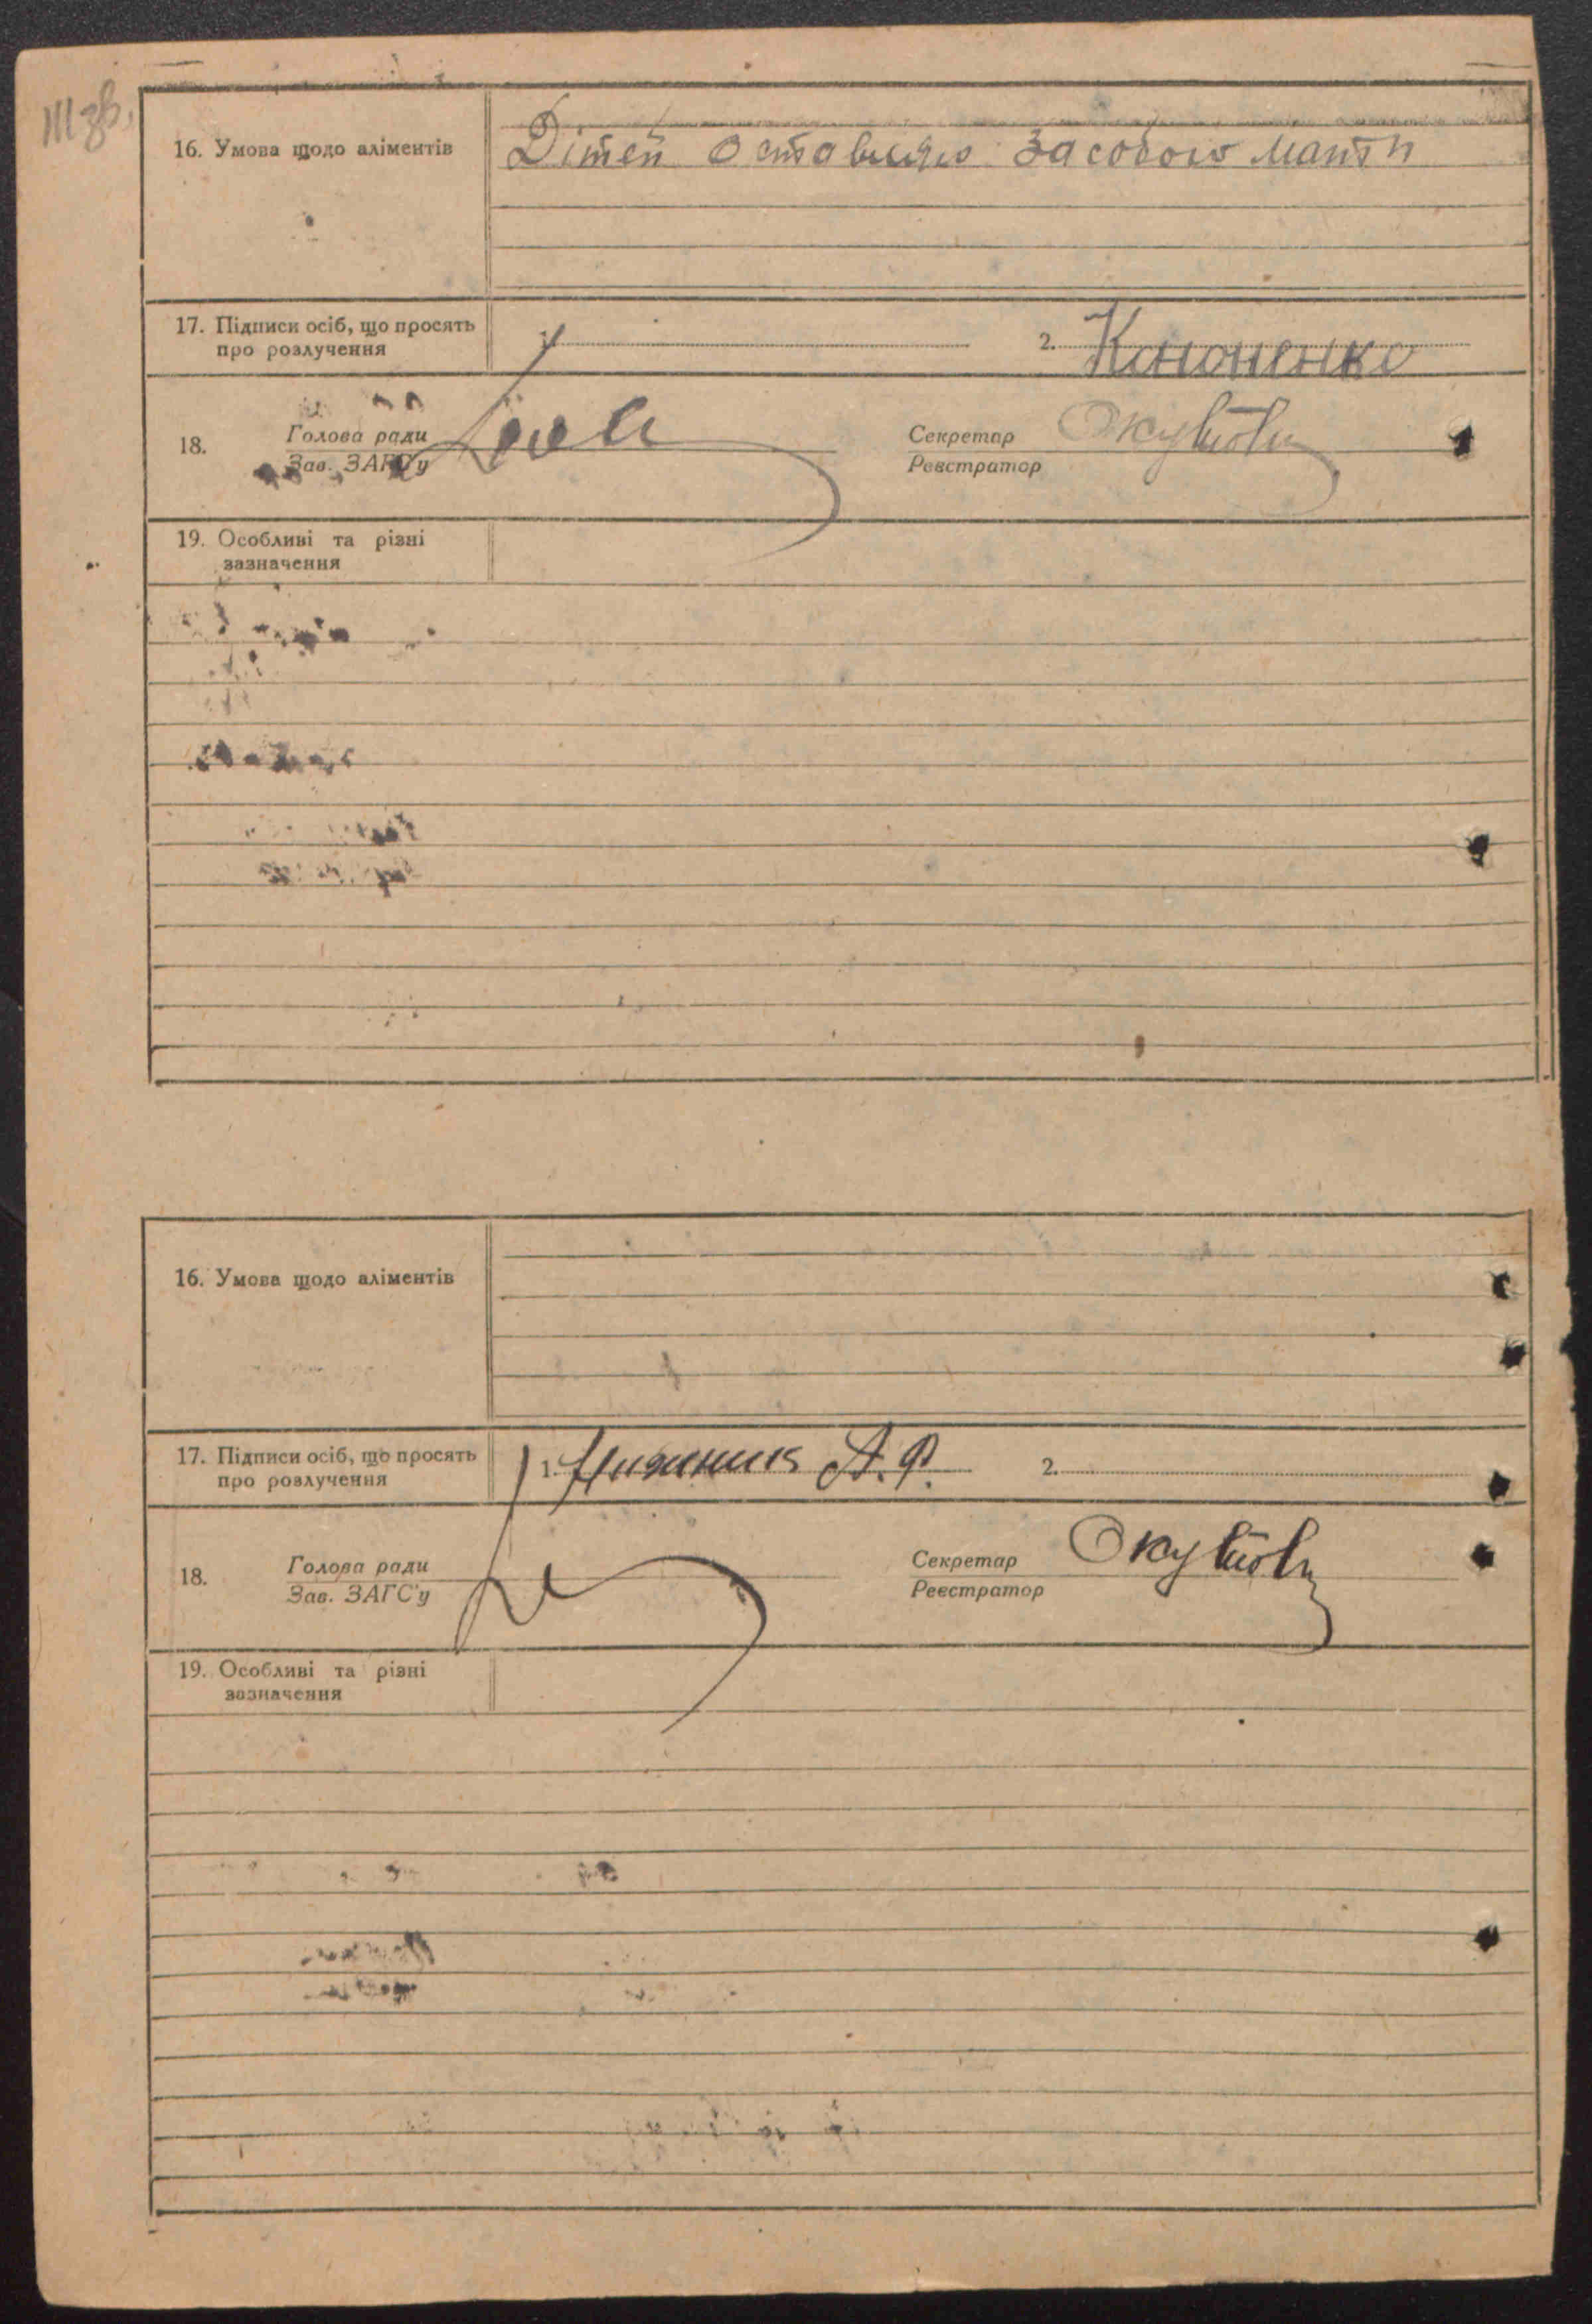 16. Умова щодо аліментів
Дітей оставляю за собою мать
17. Підписи осіб, що просять
про розлучення
2. Кононенко
18.
Голова ради
Зав. ЗАГС'у
Секретар
Реєстратор
19. Особливі та різні
зазначення
16. Умова щодо аліментів
17. Підписи осіб, що просять
про розлучення
1. Нижник А. Ф.
2.
18.
Голова ради
Зав. ЗАГС'у
Секретар
Реєстратор
19. Особливі та різні
зазначення